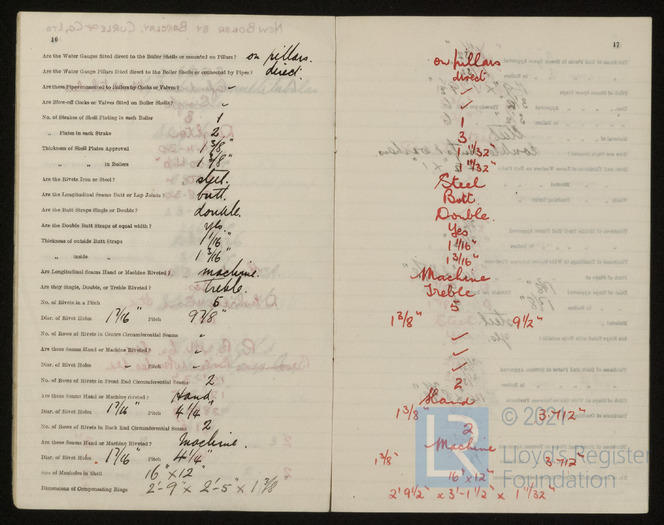 16
Are the Water Gauges fitted direct to the Boiler Shells or mounted on Pillars? on pillars.
Are the Water Gauge Pillars fitted direct to the Boiler Shells or connected by Pipes? direct.
Are these Pipes connected to Boilers by Cocks or Valves? –
Are Blow-off Cocks or Valves fitted on Boiler Shells? –
No. of Strakes of Shell Plating in each Boiler 1
„ Plates in each Strake 2
Thickness of Shell Plates Approved 1 3/8"
„ „ in Boilers 1 3/8"
Are the Rivets Iron or Steel? steel.
Are the Longitudinal Seams Butt or Lap Joints? butt.
Are the Butt Straps Single or Double? double.
Are the Double Butt Straps of equal width? yes.
Thickness of outside Butt Straps 1 1/16"
„ inside „ 1 3/16"
Are Longitudinal Seams Hand or Machine Riveted? machine.
Are they Single, Double, or Treble Riveted? Treble.
No. of Rivets in a Pitch 5
Diar. of Rivet Holes 1 7/16" Pitch 9 7/8"
No. of Rows of Rivets in Centre Circumferential Seams –
Are these Seams Hand or Machine Riveted? –
Diar. of Rivet Holes Pitch –
No. of Rows of Rivets in Front End Circumferential Seams 2
Are these Seams Hand or Machine riveted? Hand
Diar. of Rivet Holes 1 7/16" Pitch 4 1/4"
No. of Rows of Rivets in Back End Circumferential Seams 2
Are these Seams Hand or Machine Riveted? Machine.
Diar. of Rivet Holes 1 7/16" Pitch 4 1/4"
Size of Manholes in Shell 16" × 12"
Dimensions of Compensating Rings 2'-9" × 2'-5" × 1 3/8
17
on pillars
direct
✓
✓
1
3
1 11/32"
1 11/32"
Steel
Butt
Double.
Yes
1 1/16"
1 3/16"
Machine
Treble
5
1 3/8" 9 1/2"
✓
✓
✓
2
Hand
1 3/8" 3.712"
2
Machine
1 3/8" 3.712
16" × 12"
2' 9 1/2" × 3'-1 1/2" × 1 11/32"
© 2021
LR
Lloyd's Register
Foundation